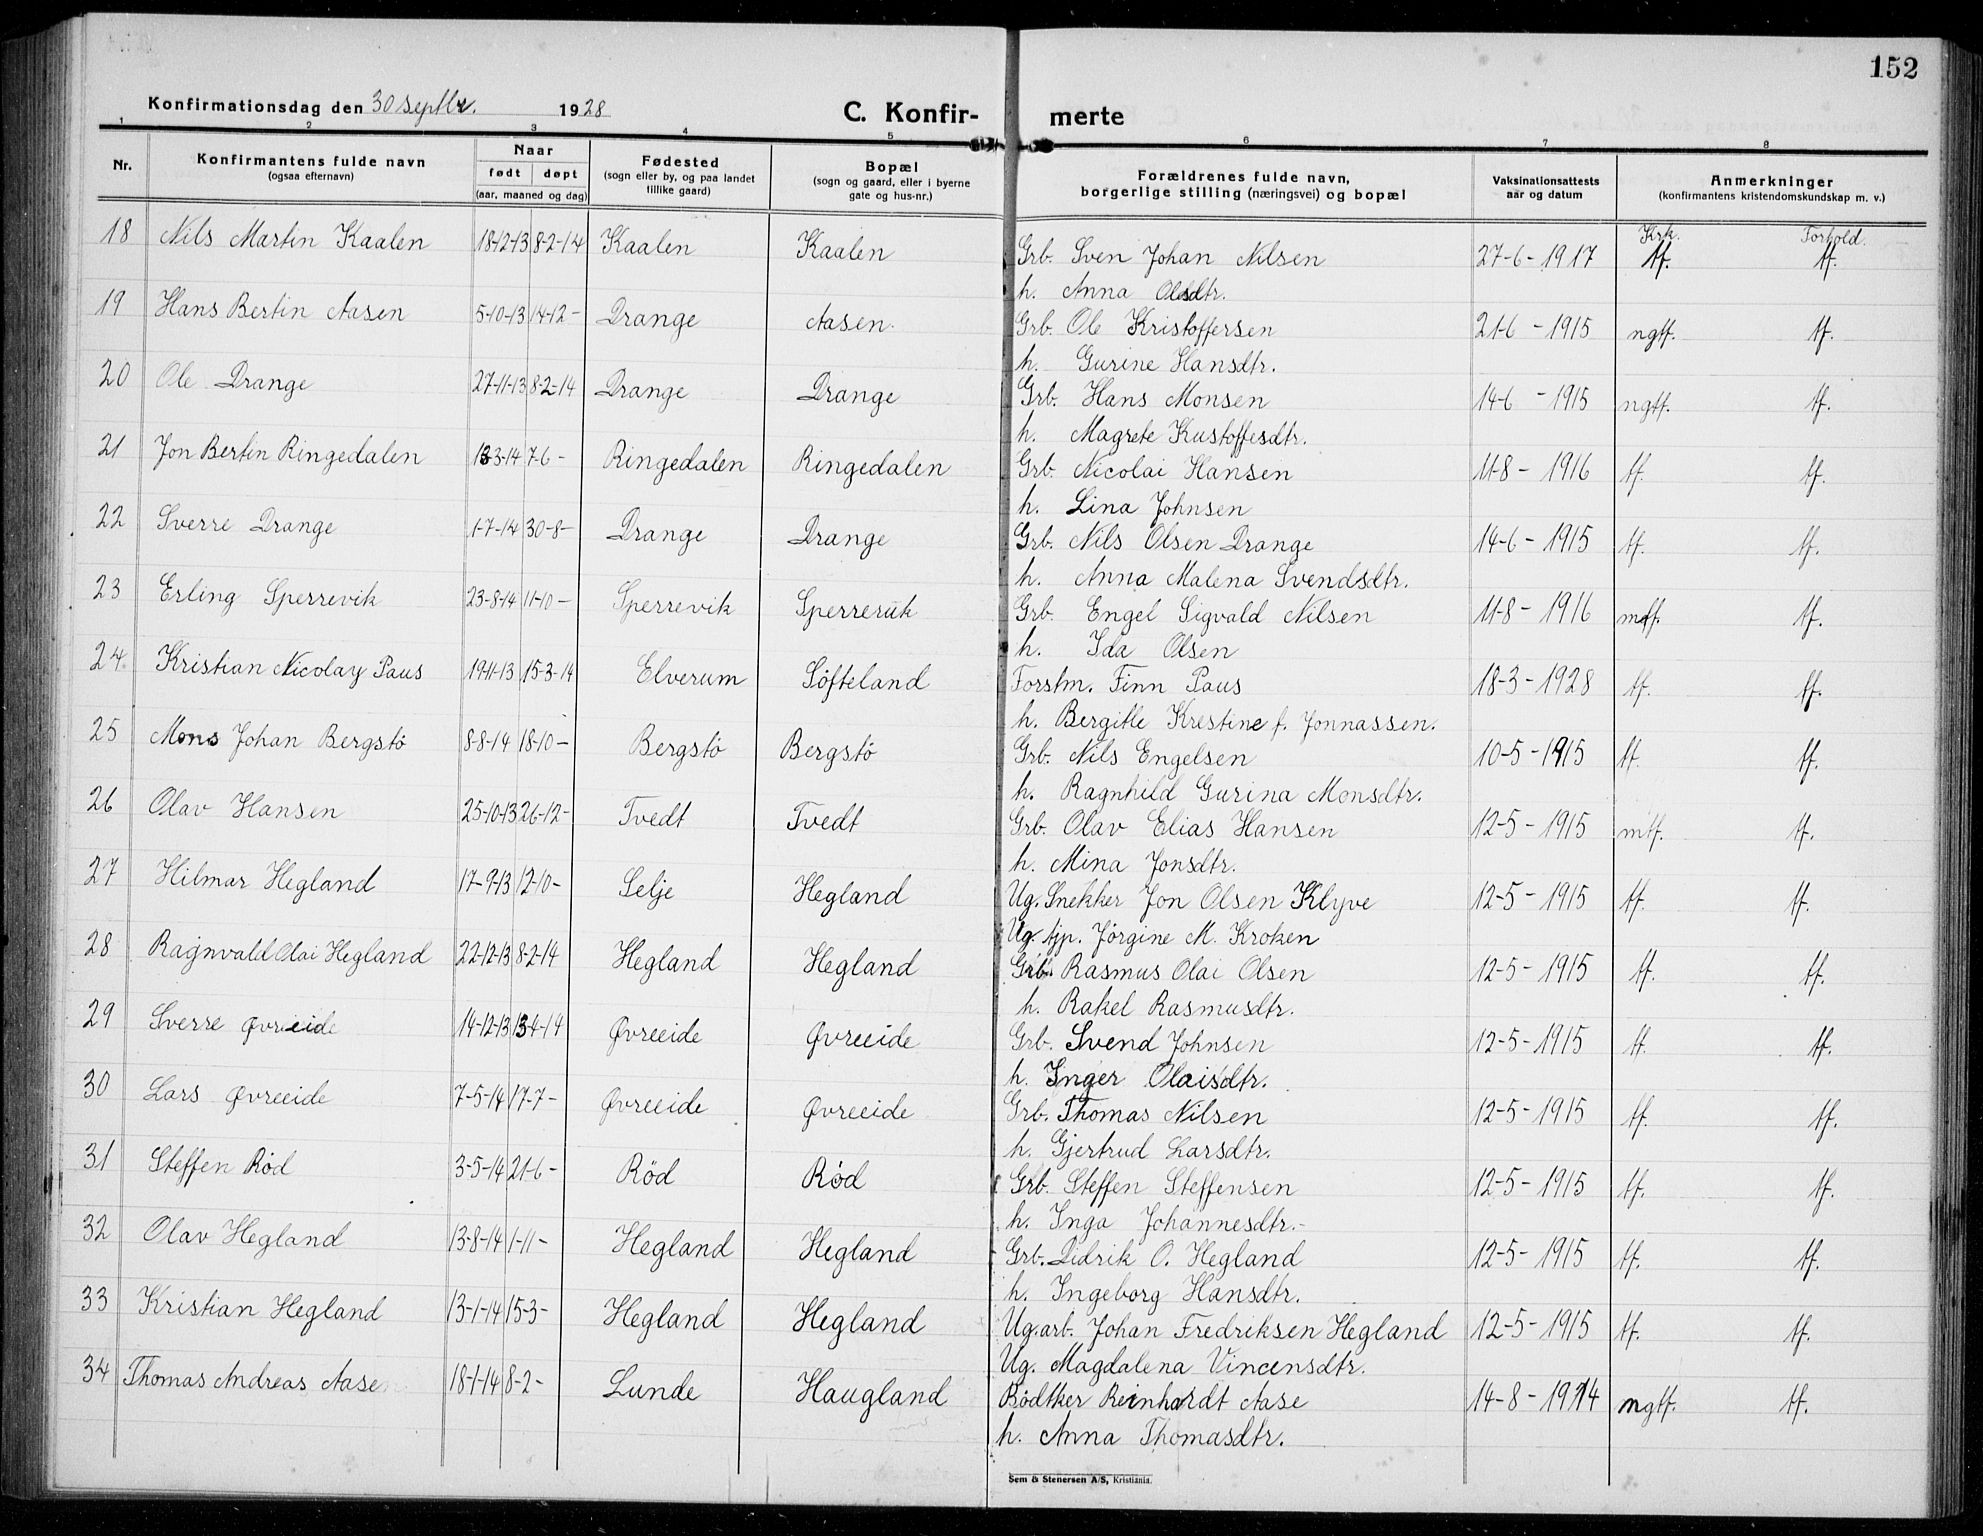 152
Konfirmationsdag den 30 septbr. 1928
C. Konfir- merte
1 2 3 4 5 6 7 8
Nr. Konfirmantens fulde navn (ogsaa efternavn) Naar født døpt (aar, maaned og dag) Fødested (sogn eller by, og paa landet tillike gaard) Bopæl (sogn og gaard, eller i byerne gate og hus-nr.) Forældrenes fulde navn, borgerlige stilling (næringsvei) og bopæl Vaksinationsattests aar og datum Anmerkninger (konfirmantens kristendomskundskap m. v.)
Krk. Forhold.
18 Nils Martin Kaalen 18-12-13 8-2-14 Kaalen Kaalen Grb. Sven Johan Nilsen 27-6-1917 tf. tf.
h. Anna Olsdtr.
19 Hans Bertin Aasen 5-10-13 14-12- Drange Aasen. Grb. Ole Kristoffersen 21-6-1915 ngtf. tf.
h. Gurine Hansdtr.
20 Ole Drange 27-11-13 8-2-14 Drange Drange Grb. Hans Monsen 14-6-1915 ngtf. tf.
h. Magrete Kustoffesdtr.
21 Jon Bertin Ringedalen 13-3-14 7-6- Ringedalen Ringedalen Grb. Nicolai Hansen 11-8-1916 tf. tf.
h. Lina Johnsen
22 Sverre Drange 1-7-14 30-8- Drange Drange Grb. Nils Olsen Drange 14-6-1915 tf. tf.
h. Anna Malena Svendsdtr.
23 Erling Sperrevik 23-8-14 11-10- Sperrevik Sperrevik Grb. Engel Sigvald Nilsen 11-8-1916 mtf. tf.
h. Ida Olsen
24. Kristian Nicolay Paus 19-11-13 15-3-14 Elverum Söfteland Forstm. Finn Paus 18-3-1928 tf. tf.
h. Bergitte Krestine f. Jonnassen.
25 Mons Johan Bergstö 8-8-14 18-10- Bergstö Bergstö Grb. Nils Engelsen 10-5-1915 tf. tf.
h. Ragnhild Gurina Monsdtr.
26 Olav Hansen 25-10-13 26-12- Tvedt Tvedt Grb. Olav Elias Hansen 12-5-1915 mtf. tf.
h. Mina Jonsdtr.
27 Hilmar Hegland 17-9-13 12-10- Selje Hegland Ug. Snekker Jon Olsen Klyve 12-5-1915 tf. tf.
Ug. tjp. Jörgine M. Kroken
28 Ragnvald Olai Hegland 22-12-13 8-2-14 Hegland Hegland Grb. Rasmus Olai Olsen 12-5-1915 tf. tf.
h. Rakel Rasmusdtr.
29 Sverre Øvreeide 14-12-13 13-4-14 Øvreeide Øvreeide Grb. Svend Johnsen 12-5-1915 tf. tf.
h. Inger Olaisdtr.
30 Lars Øvreeide 7-5-14 17-7- Øvreeide Øvreeide Grb. Thomas Nilsen 12-5-1915 tf. tf.
h. Gjertrud Larsdtr.
31 Steffen Rød 3-5-14 21-6- Röd Rød Grb. Steffen Steffensen 12-5-1915 tf. tf.
h. Inga Johannesdtr.-
32 Olav Hegland 13-8-14 1-11- Hegland Hegland Grb. Didrik O. Hegland 12-5-1915 tf. tf.
h. Ingeborg Hansdtr.
33 Kristian Hegland 13-1-14 15-3- Hegland Hegland Ug. arb. Johan Fredriksen Hegland 12-5-1915 tf. tf.
Ug. Magdalena Vincensdtr.
34 Thomas Andreas Aase 18-1-14 8-2- Lunde Haugland Bödtker Reinhardt Aase 14-8-1914 ngtf. tf.
h. Anna Thomasdtr.
Sem & Stenersen A/S, Kristiania.